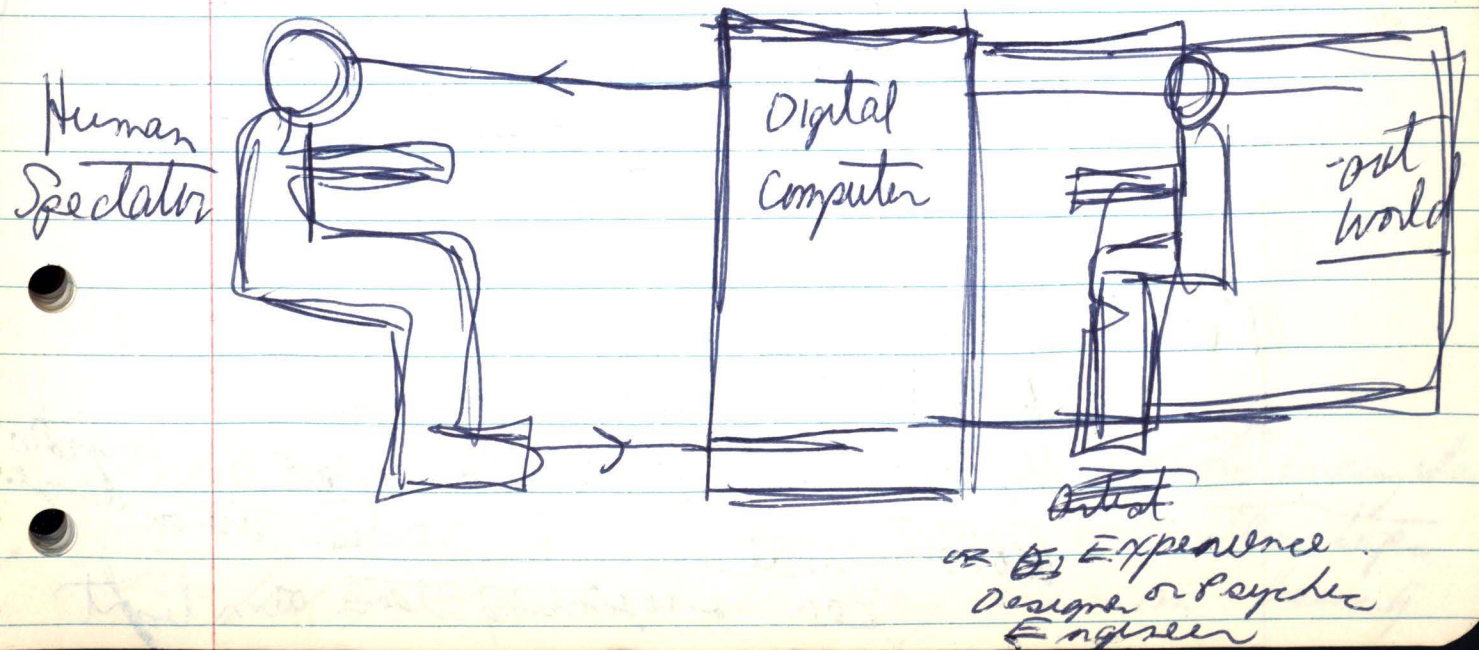 Human
Spectator
Digital
Computer
-art
World
Artist
or Experience
Designer or Psychic
Engineer